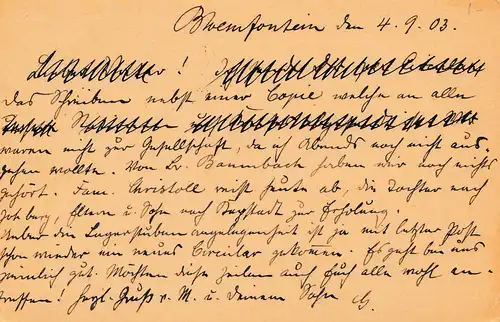 Bloemfontein den 4. 9. 03.
!
das Schreiben nebst einer Copie welche an alle
waren nicht zur Gesellschaft, da ich Abends noch nicht aus-
gehen wollte. Von Br. Baumbach haben wir noch nichts
gehört. Fam. Christoll reist heute ab, die Tochter nach
Joh'burg, Eltern u. Sohn nach Kapstadt zur Erholung.
Ueber die angelegenheit ist ja mit letzter Post
schon wieder ein neues Circular gekommen. Es geht bei uns
ziemlich gut. Möchten diese Zeilen auch Euch alle wohl an-
treffen! Herzl. Gruß v. M. u. deinem Sohn